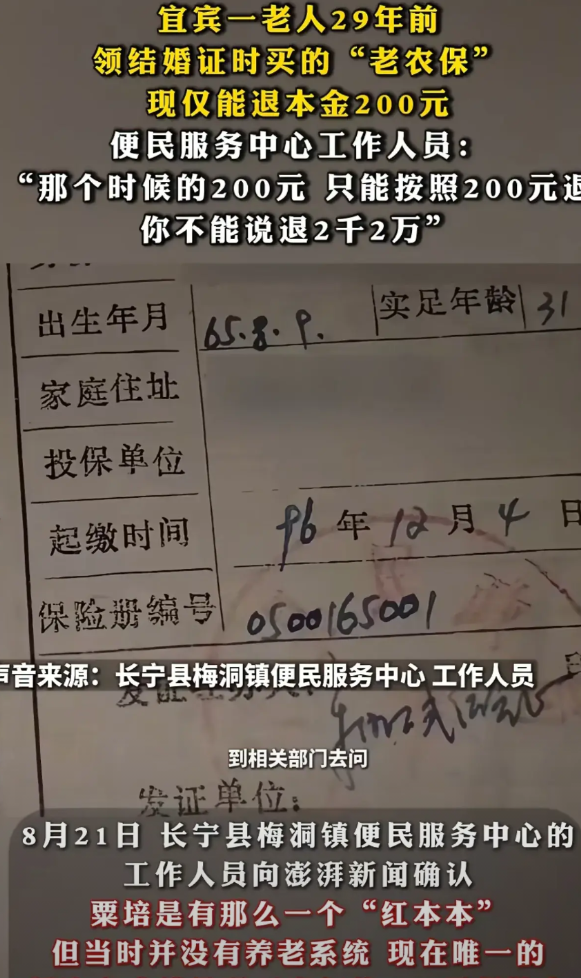 宜宾一老人29年前
领结婚证时买的“老农保”
现仅能退本金200元
便民服务中心工作人员：
“那个时候的200元 只能按照200元退
你不能说退2千2万”
出生年月 65.8.9. 实足年龄 31
家庭住址
投保单位
起缴时间 96年12月4日
保险册编号 0500165001
声音来源：长宁县梅洞镇便民服务中心 工作人员
到相关部门去问
发证单位：
8月21日 长宁县梅洞镇便民服务中心的
工作人员向澎湃新闻确认
粟培是有那么一个“红本本”
但当时并没有养老系统 现在唯一的